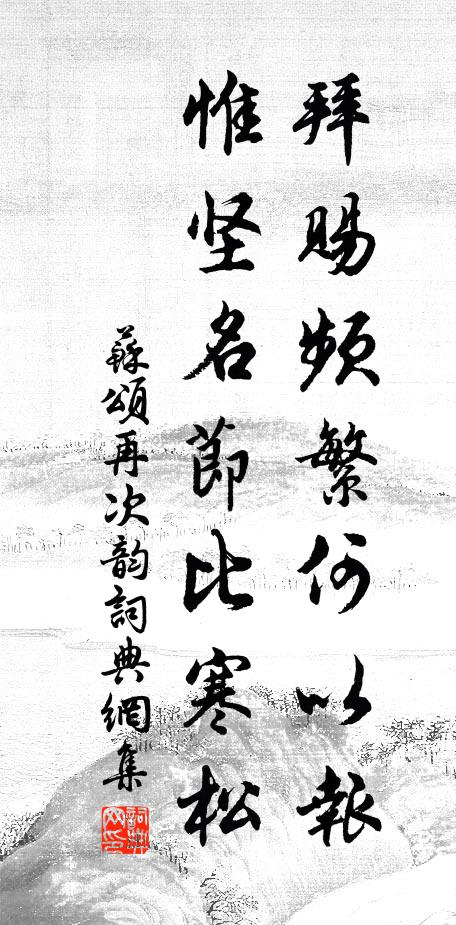 拜賜頻繁何以報
惟坚名節比寒松
蘇頌再次韵詞典網集